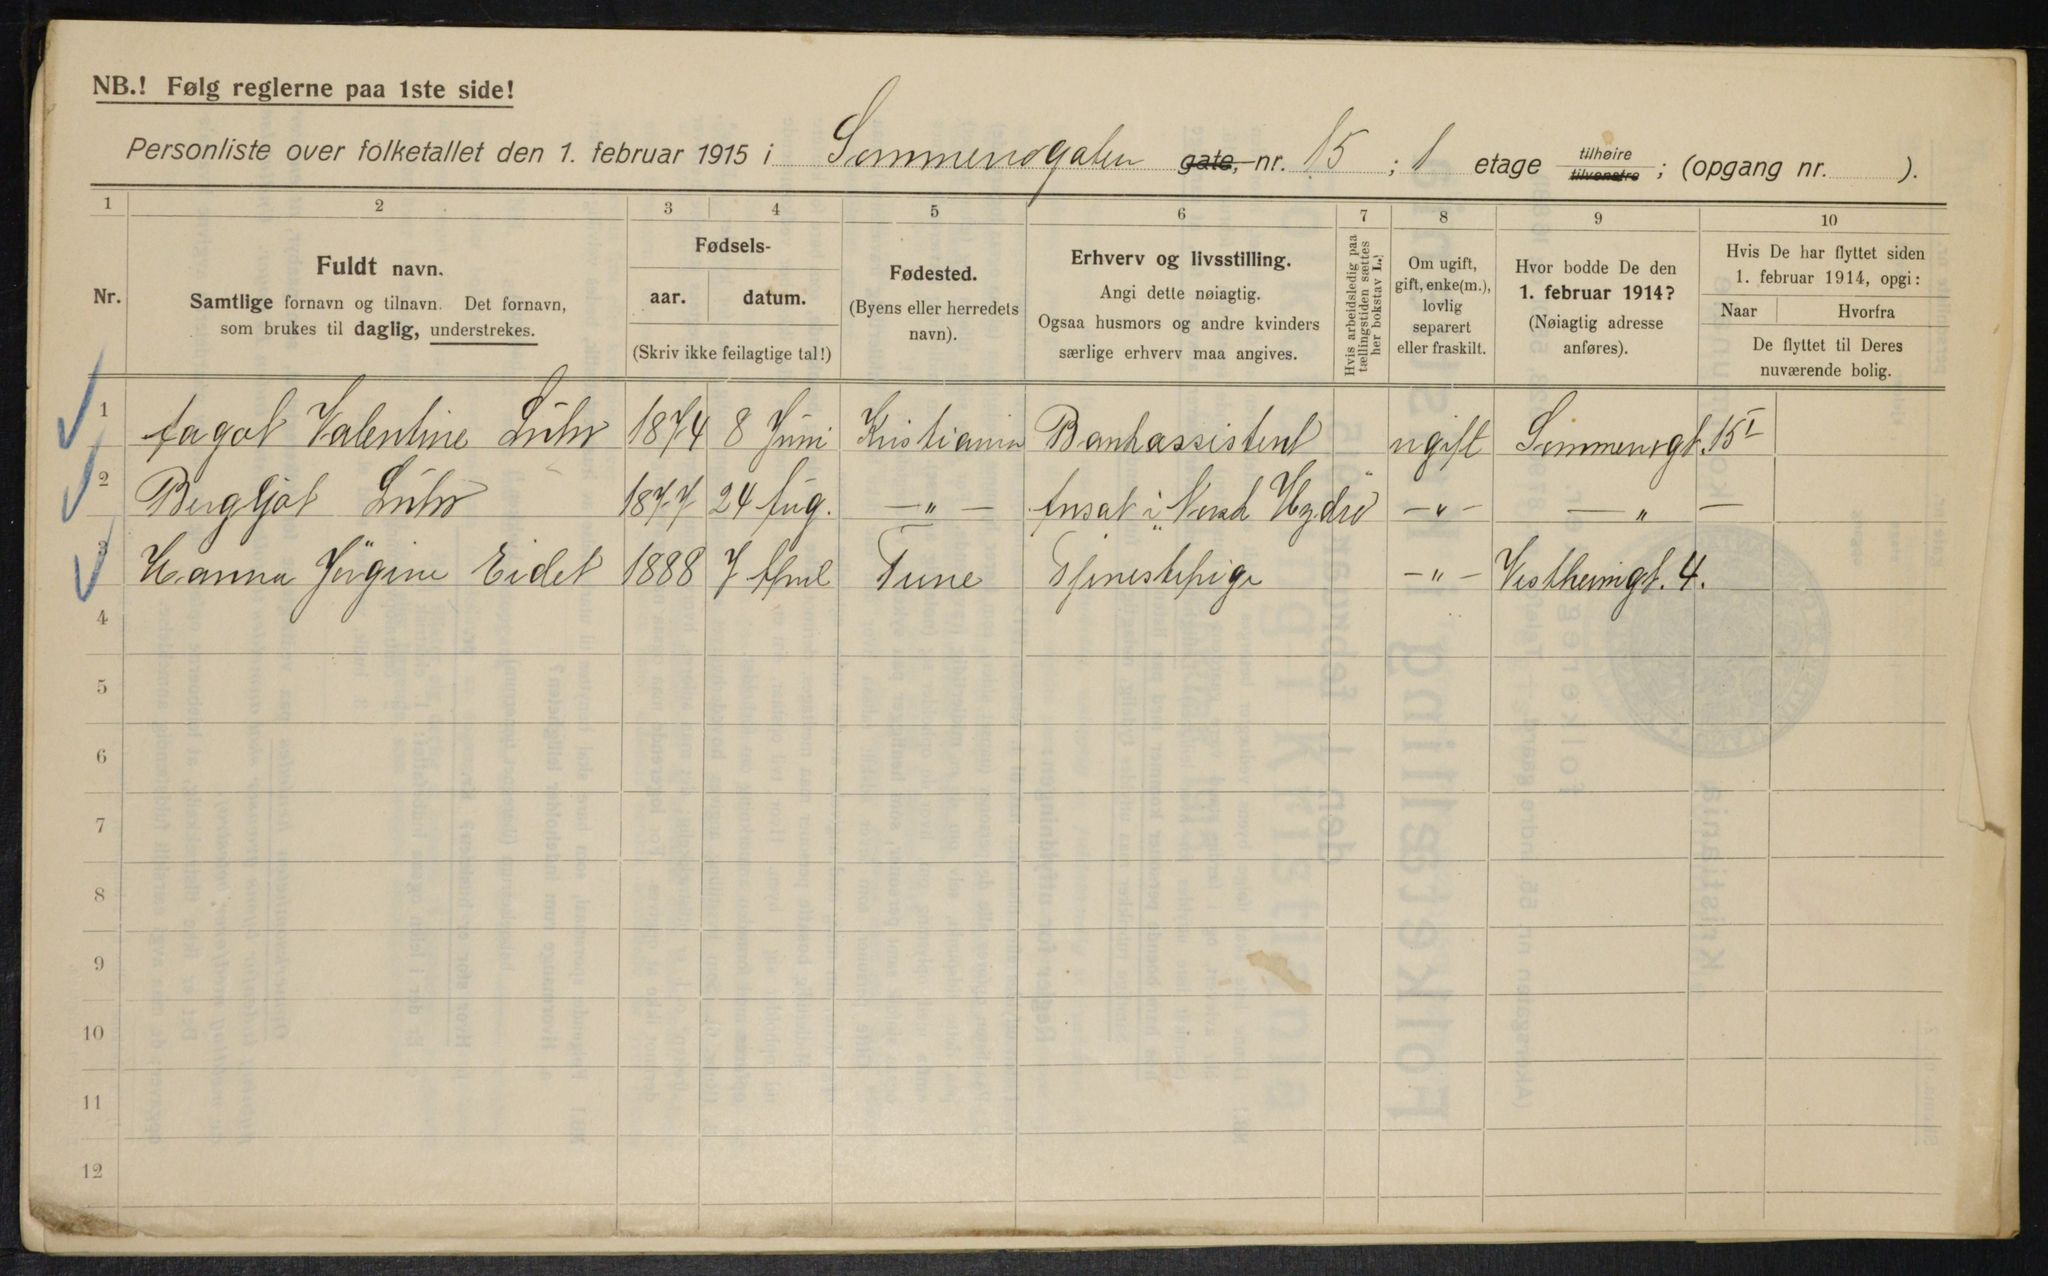 NB.! Følg reglerne paa 1ste side!
Personliste over folketallet den 1. februar 1915 i Sommerrogaten gate, nr. 15 ; 1 etage tilhøire tilvenstre ; (opgang nr. ).
1 2 3 4 5 6 7 8 9 10
Nr.
Fuldt navn.
Samtlige fornavn og tilnavn. Det fornavn,
som brukes til daglig, understrekes.
Fødsels-
aar. datum.
(Skriv ikke feilagtige tal!)
Fødested.
(Byens eller herredets
navn).
Erhverv og livsstilling.
Angi dette nøiagtig.
Ogsaa husmors og andre kvinders
særlige erhverv maa angives.
Hvis arbeidsledig paa
tællingstiden sættes
her bokstav L.)
Om ugift,
gift, enke(m.),
lovlig
separert
eller fraskilt.
Hvor bodde De den
1. februar 1914?
(Nøiagtig adresse
anføres).
Hvis De har flyttet siden
1. februar 1914, opgi:
Naar Hvorfra
De flyttet til Deres
nuværende bolig.
1 Aagot Valentine Lühr 1874 8 Juni Kristiania Bankassistent ugift Sommerrogt. 15 I
2 Bergljot Lühr 1877 24 Aug. — „ — Ansat i „Norsk Hydro" — „ — — „ —
3 Hanna Jörgine Eidet 1888 7 April Tune Tjenestepige — „ — Vestheimgt. 4.
4
5
6
7
8
9
10
11
12